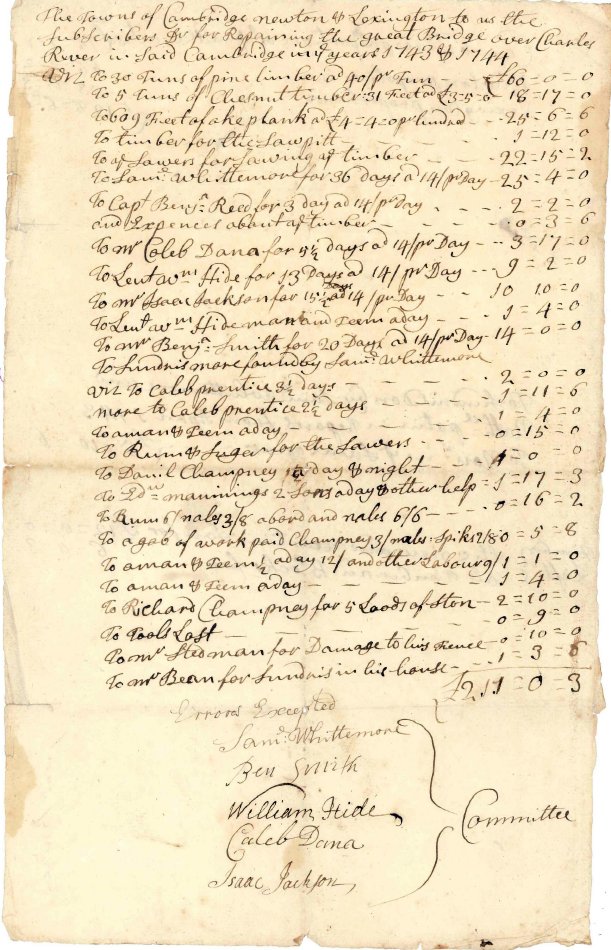 The Towns of Cambridge newton & Lexington to us the
Subscribers Dr for Repairing the great Bridge over Charles
River in Said Cambridge in ye years 1743 & 1744
Viz To 30 Tuns of pine timber at 40/ pr Tun - - £60=0=0
To 5 tuns of Chesnut timber 31 Feet ad £3=5=0 18=17=0
To 609 Feet of oke plank ad £4=4=0 pr hundred - - 25=6=6
To timber for the Sawpitt - - - 1=12=0
To ye Sawers for Sawing ye timber - - - 22=15=2
To Samll Whittemore for 36 days ad 14/ pr Day - 25=4=0
To Capt Benja Reed for 3 day ad 14/ pr Day - - 2=2=0
and Expences about ye timber - - - 0=3=6
To mr Caleb Dana for 5½ days ad 14/ pr Day - - 3=17=0
To Leut wm Hide for 13 Days ad 14/ pr Day - - 9=2=0
To mr Isaac Jackson for 15 Days ad 14/ pr Day 10 10=0
To Leut wm Hide man and Teem a day - - 1=4=0
To mr Benja Smith for 20 Days ad 14/ pr Day - 14=0=0
To Sundris more found by Saml Whittemore
viz To Caleb prentice 3½ days - - - 2=0=0
more to Caleb prentice 2½ days - - - 1=11=6
To a man & Teem a day - - - 1=4=0
To Rum & Suger for the Sawers - - - 0=15=0
To Danil Champney day & night - - 1=0=0
To Edw mannings 2 Sons a day & other help = 1=17=3
To Rum 6/ nales 3/8 abord and nales 6/6 - - 0=16=2
To a gob of work paid Champney 3/ nales & Spiks 2/8 0=5=8
To a man & Teem ½ a day 12/ and other Labour 9/ 1=1=0
To a man & Teem a day - - - 1=4=0
To Richard Champney for 5 Loods of Ston - 2=10=0
To Tools Last - - - 0=9=0
To mr Stedman for Damage to his Fence 0=10=0
To mr Bean for Sundris in his house - - 1=3=6
£211=0=3
Errors Excepted
Saml Whittemore
Ben Smith
William Hide
Caleb Dana
Isaac Jackson
Committee